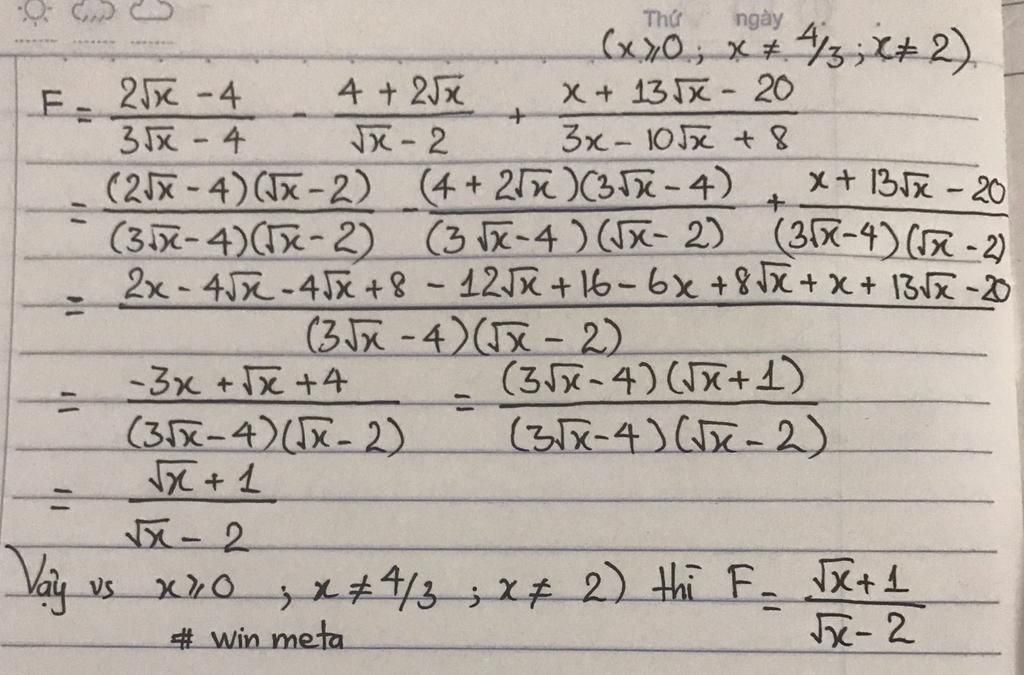 Thứ ngày
(x ⩾ 0 ; x ≠ 4/3 ; x ≠ 2)
F = (2√x - 4)/(3√x - 4) - (4 + 2√x)/(√x - 2) + (x + 13√x - 20)/(3x - 10√x + 8)
= ((2√x - 4)(√x - 2))/((3√x - 4)(√x - 2)) - ((4 + 2√x)(3√x - 4))/((3√x - 4)(√x - 2)) + (x + 13√x - 20)/((3√x - 4)(√x - 2))
= (2x - 4√x - 4√x + 8 - 12√x + 16 - 6x + 8√x + x + 13√x - 20)/((3√x - 4)(√x - 2))
= (-3x + √x + 4)/((3√x - 4)(√x - 2)) = ((3√x - 4)(√x + 1))/((3√x - 4)(√x - 2))
= (√x + 1)/(√x - 2)
Vậy vs x ⩾ 0 ; x ≠ 4/3 ; x ≠ 2) thì F = (√x + 1)/(√x - 2)
# win meta